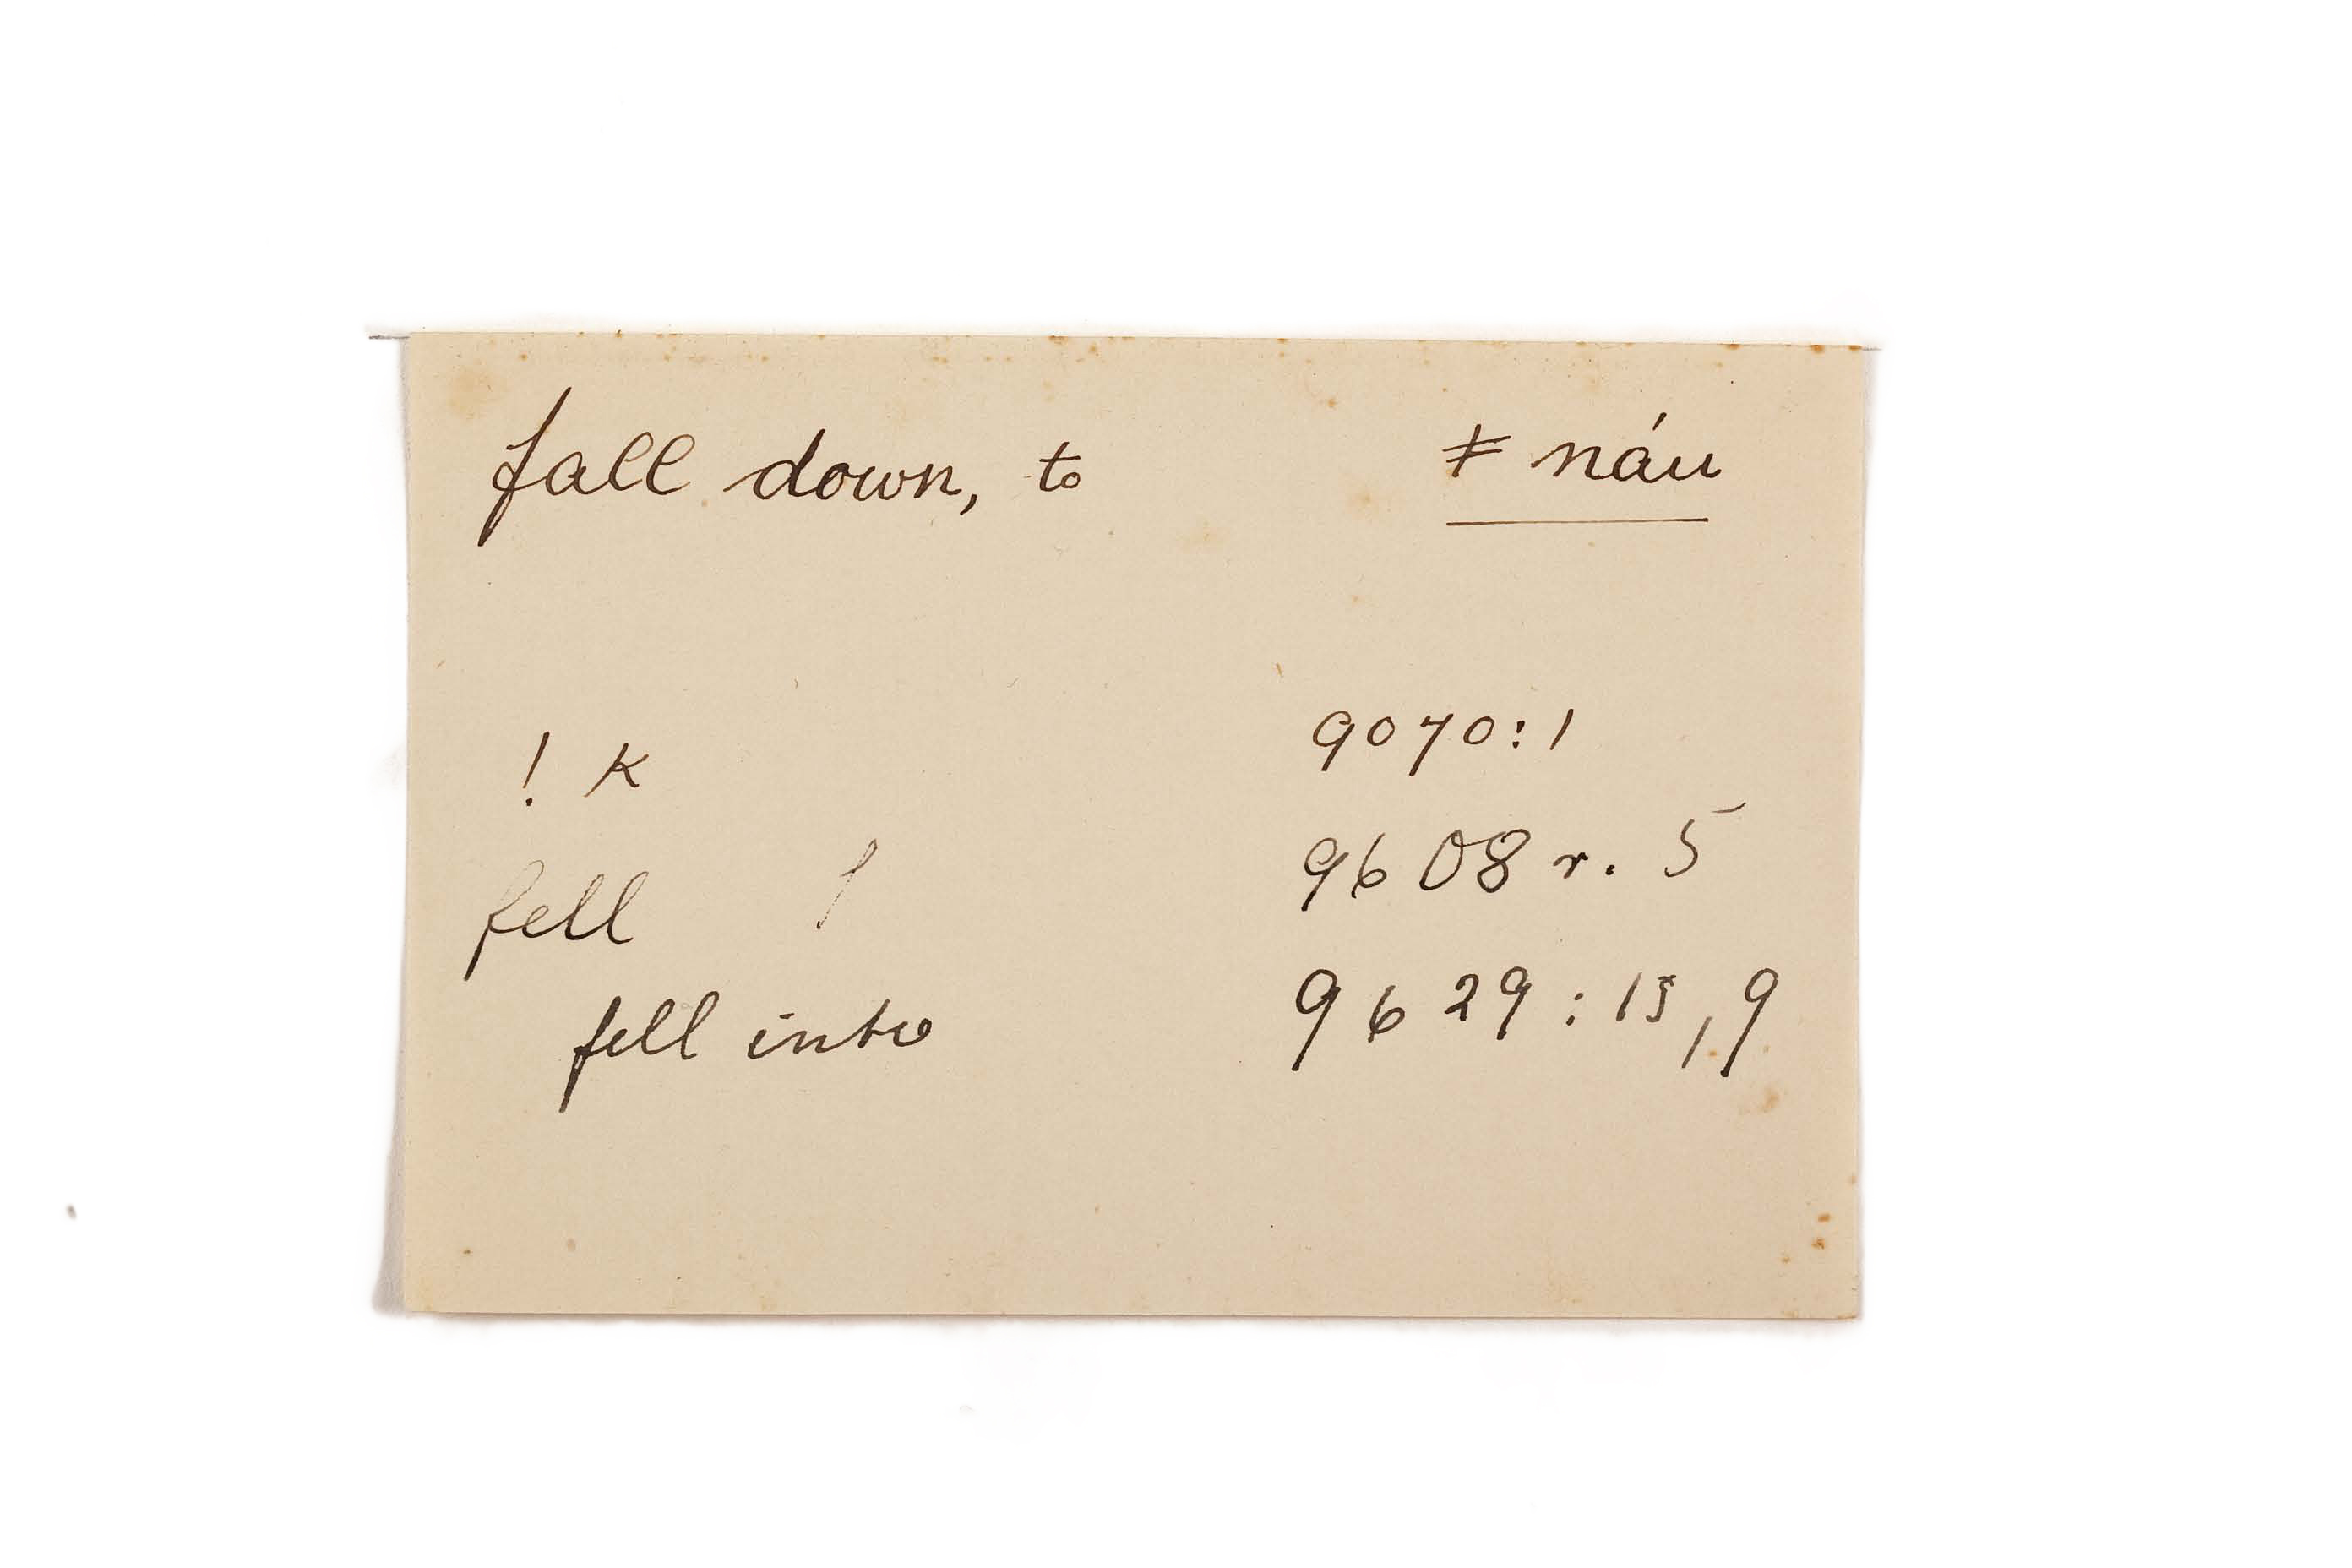 fall down, to ǂ náu
! K 9070:1
fell 9608 r. 5
fell into 9629:15,9